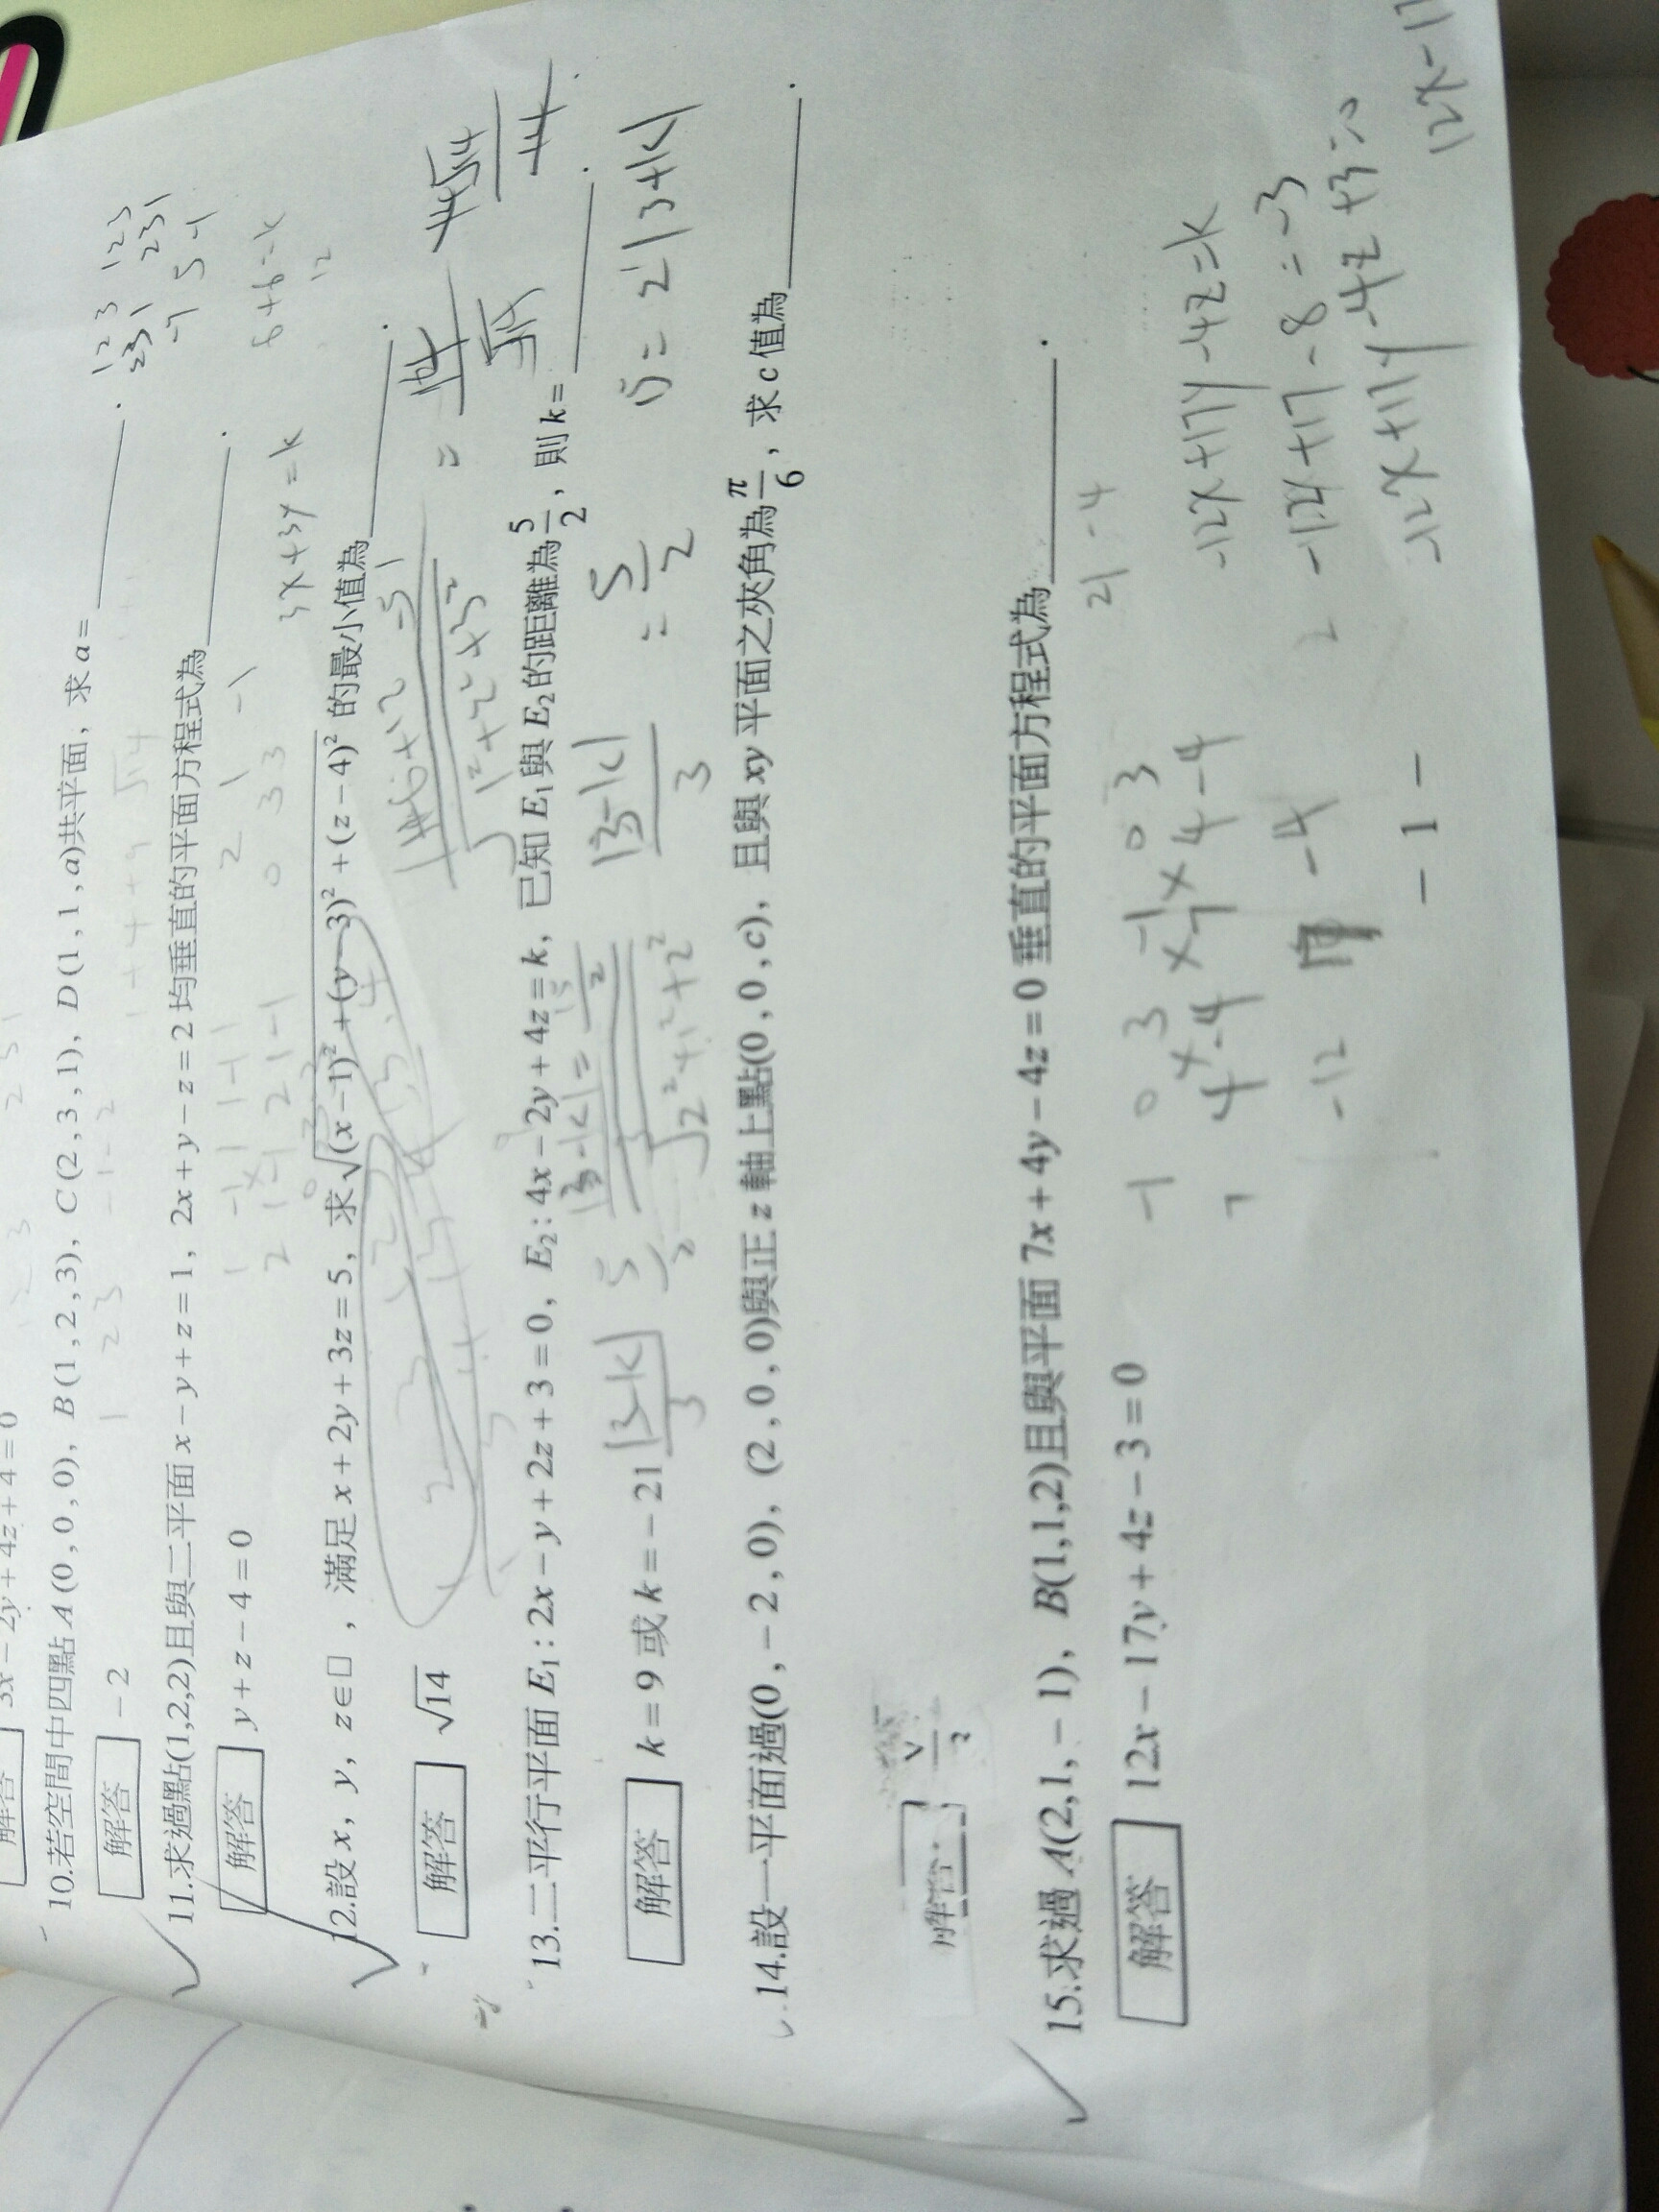 3x − 2y + 4z + 4 = 0
10.若空間中四點 A(0 , 0 , 0), B(1 , 2 , 3), C(2 , 3 , 1), D(1 , 1 , a)共平面, 求 a =________.
1 2 3 1 2 3
2 3 1 2 3 1
-7 5 -1
解答 − 2
11.求過點(1,2,2)且與二平面 x − y + z = 1, 2x + y − z = 2 均垂直的平面方程式為________.
解答 y + z − 4 = 0
1 -1 1 1 -1 1
2 1 -1 2 1 -1
0 3 3
3x+3y=k
6+6=k
12
12.設 x, y, z∈□ , 滿足 x + 2y + 3z = 5, 求 √(x − 1)² + (y − 3)² + (z − 4)² 的最小值為________.
解答 √14
13.二平行平面 E₁ : 2x − y + 2z + 3 = 0, E₂ : 4x − 2y + 4z = k, 已知 E₁ 與 E₂ 的距離為 5/2 , 則 k =________.
解答 k = 9 或 k = − 21
= 5/2
15 = 2|3+k|
14.設一平面過(0 , − 2 , 0), (2 , 0 , 0)與正 z 軸上點(0 , 0 , c), 且與 xy 平面之夾角為 π/6 , 求 c 值為________.
解答
15.求過 A(2,1, − 1), B(1,1,2)且與平面 7x + 4y − 4z = 0 垂直的平面方程式為________.
解答 12x − 17y + 4z − 3 = 0
21-4
-1 0 3 -1 0 3
7 4 -4 7 4 -4
-12 17 -4
-12x+17y-4z=k
-12+17-8=-3
-12x+17y-4z+3=0
12x-17
− 1 −